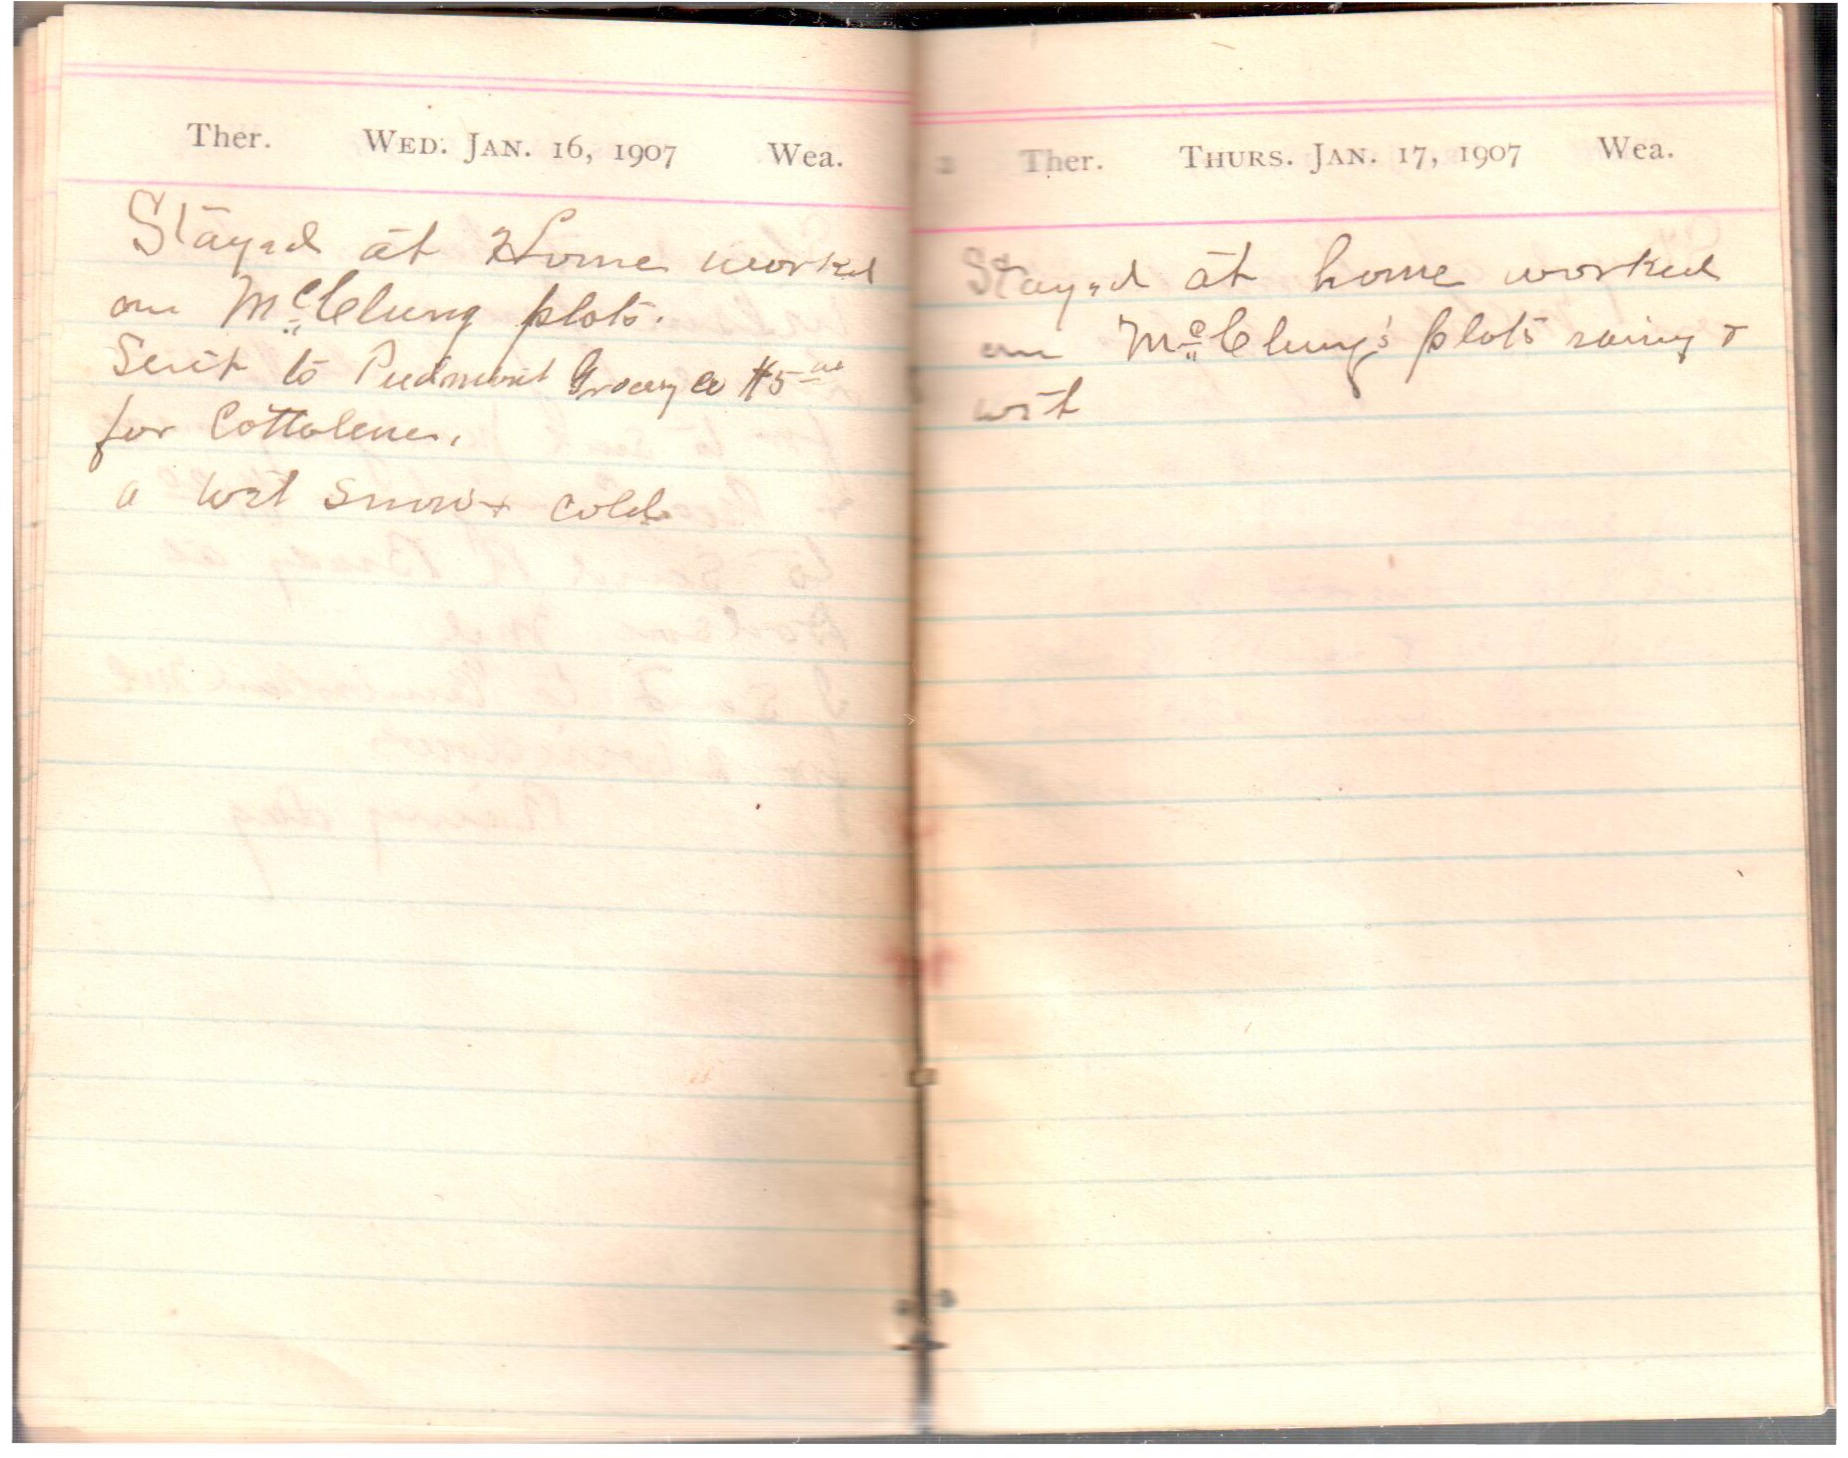 Ther. WED. JAN. 16, 1907 Wea.
Stayed at Home worked
on McClung plots.
Sent to Piedmont Grocery Co $5
for Cottolene.
a wet snow + cold
Ther. THURS. JAN. 17, 1907 Wea.
Stayed at home worked
on McClung's plots rainy &
wet